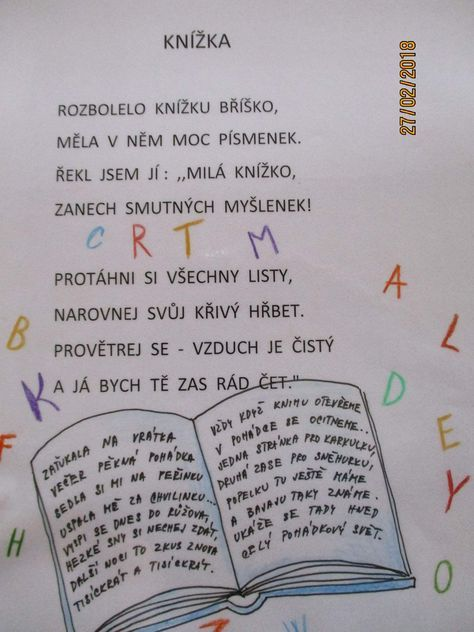 27/02/2018
KNÍŽKA
ROZBOLELO KNÍŽKU BŘÍŠKO,
MĚLA V NĚM MOC PÍSMENEK.
ŘEKL JSEM JÍ : ,,MILÁ KNÍŽKO,
ZANECH SMUTNÝCH MYŠLENEK!
C R T M
PROTÁHNI SI VŠECHNY LISTY,
NAROVNEJ SVŮJ KŘIVÝ HŘBET.
PROVĚTREJ SE - VZDUCH JE ČISTÝ
A JÁ BYCH TĚ ZAS RÁD ČET."
B
K
F
H
A
L
D
E
Y
O
ZAŤUKALA NA VRÁTKA
VEČER PĚKNÁ POHÁDKA
SEDLA SI MI NA PEŘINKU
USPALA MĚ ZA CHVILINKU...
VYSPI SE DNES DO RŮŽOVA,
HEZKÉ SNY SI NECHEJ ZDÁT,
DALŠÍ NOCI TO ZKUS ZNOVA
TISÍCKRÁT A TISÍCKRÁT.
VŽDY KDYŽ KNIHU OTEVŘEME
V POHÁDCE SE OCITNEME...
JEDNA STRÁNKA PRO KARKULKU,
DRUHÁ ZASE PRO SNĚHURKU,
POPELKU TU JEŠTĚ MÁME
A BAVAJU TAKY ZNÁME.
UKÁŽE SE TADY HNED
CELÝ POHÁDKOVÝ SVĚT.